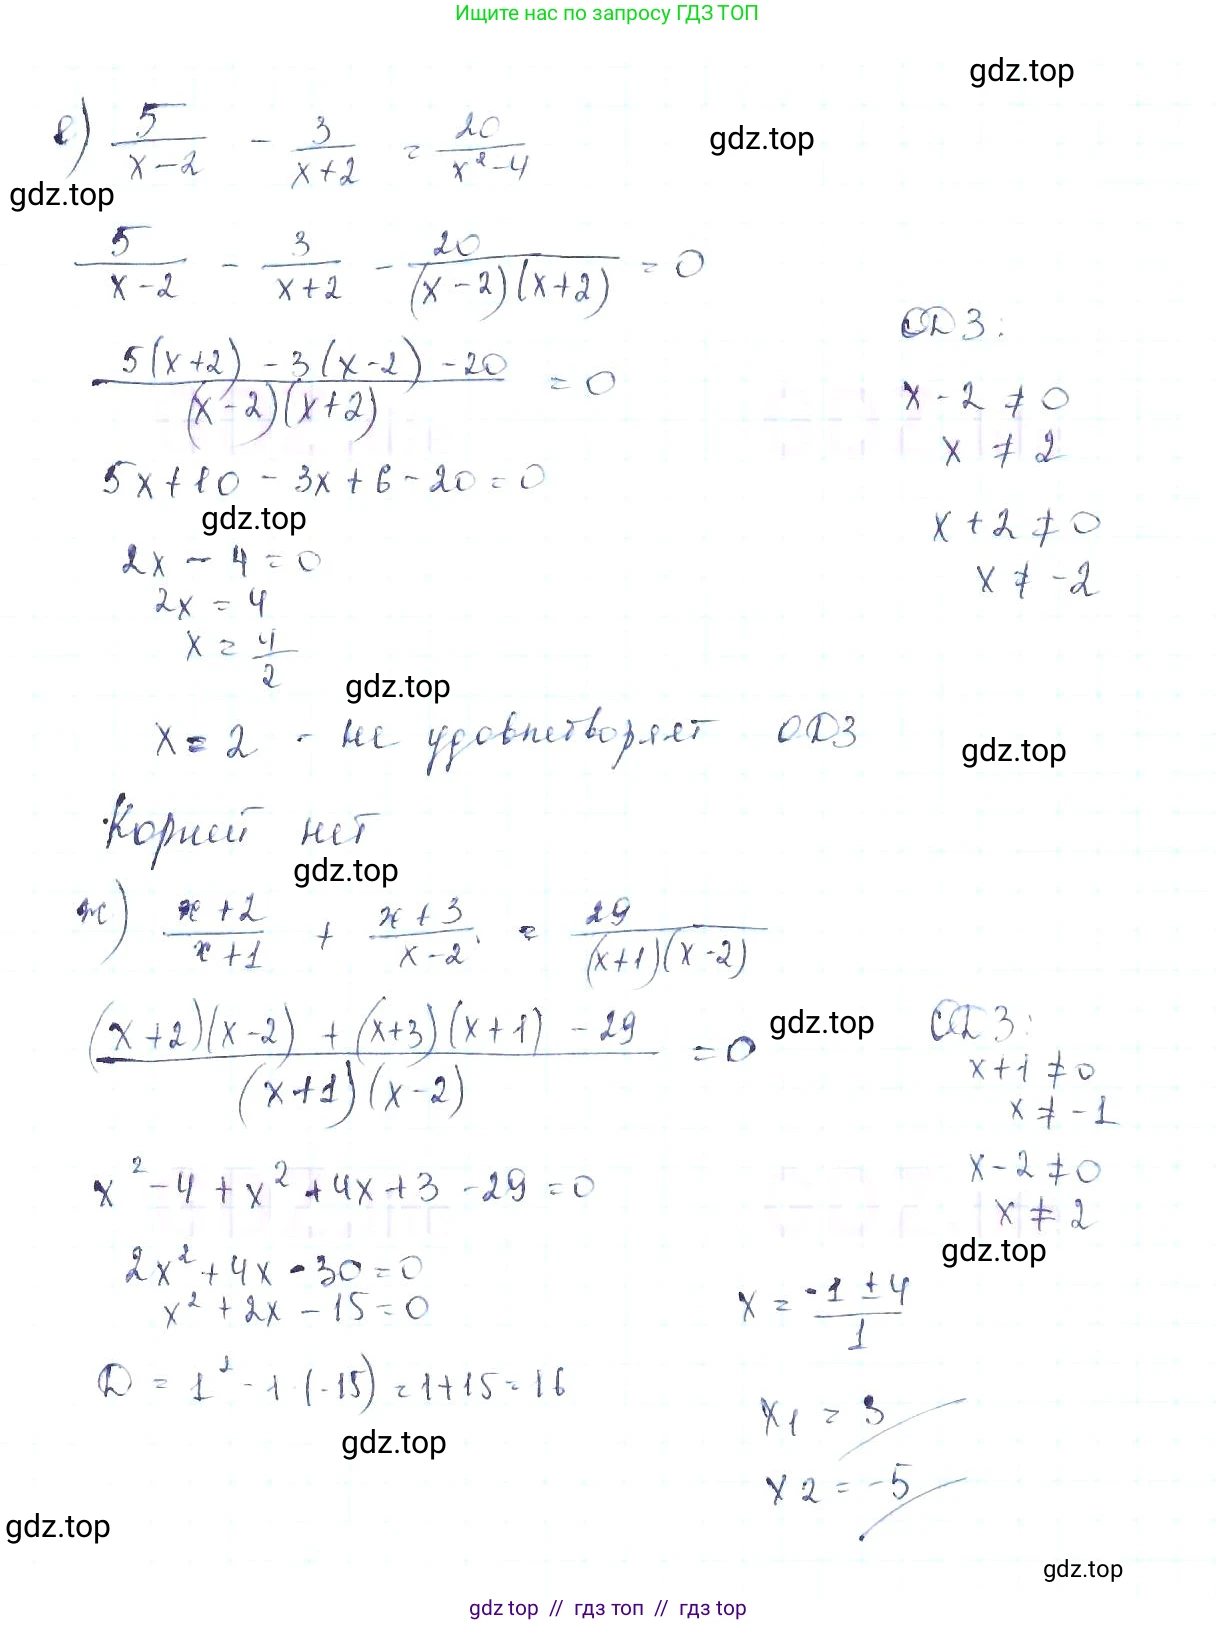 Ищите нас по запросу ГДЗ ТОП
gdz.top
е) 5/(x-2) - 3/(x+2) = 20/(x²-4)
gdz.top
gdz.top
5/(x-2) - 3/(x+2) - 20/((x-2)(x+2)) = 0
ОДЗ:
(5(x+2) - 3(x-2) - 20)/((x-2)(x+2)) = 0
x - 2 ≠ 0
x ≠ 2
5x+10 - 3x+6 - 20 = 0
gdz.top
x + 2 ≠ 0
2x - 4 = 0
x ≠ -2
2x = 4
x = 4/2
gdz.top
x = 2 - не удовлетворяет ОДЗ
gdz.top
Корней нет
gdz.top
ж) (x+2)/(x+1) + (x+3)/(x-2) = 29/((x+1)(x-2))
gdz.top
ОДЗ:
((x+2)(x-2) + (x+3)(x+1) - 29)/((x+1)(x-2)) = 0
x+1 ≠ 0
x ≠ -1
x² - 4 + x² + 4x + 3 - 29 = 0
x - 2 ≠ 0
x ≠ 2
gdz.top
2x² + 4x - 30 = 0
x² + 2x - 15 = 0
x = (-1 ± 4)/1
D = 1² - 1·(-15) = 1+15 = 16
x1 = 3
gdz.top
x2 = -5
gdz.top
gdz.top
gdz top // гдз топ // гдз top